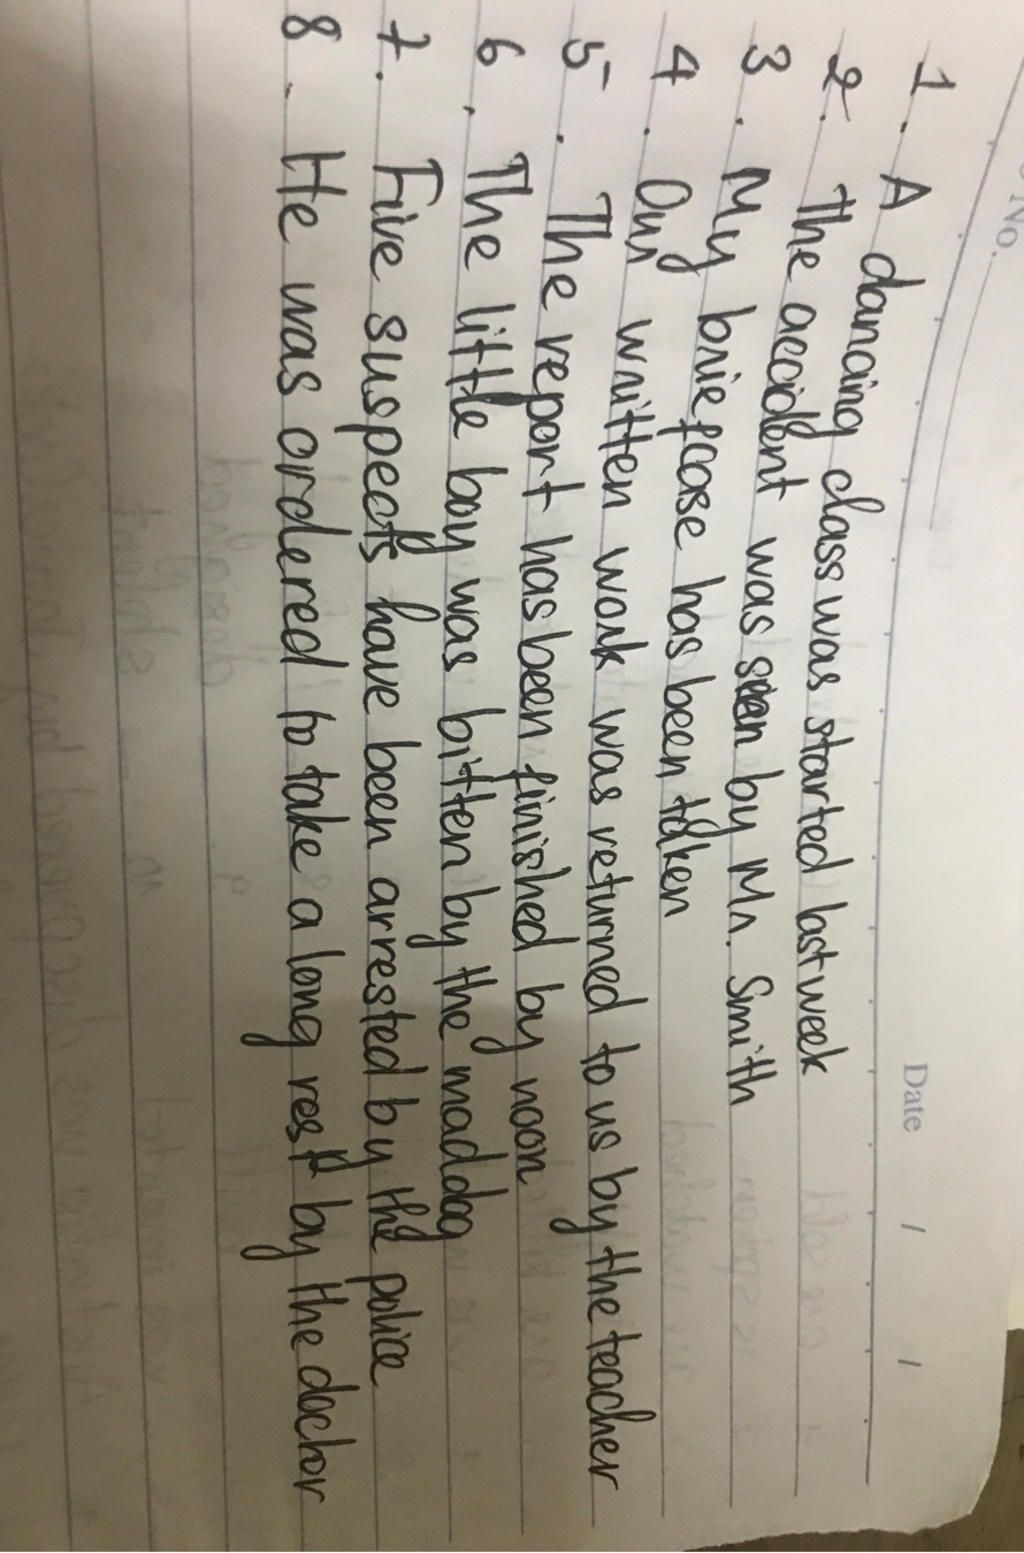 No.
Date / /
1. A dancing class was started last week
2. The accident was seen by Mr. Smith
3. My briefcase has been taken
4. Our written work was returned to us by the teacher
5. The report has been finished by noon
6. The little boy was bitten by the mad dog
7. Five suspects have been arrested by the police
8. He was ordered to take a long rest by the doctor